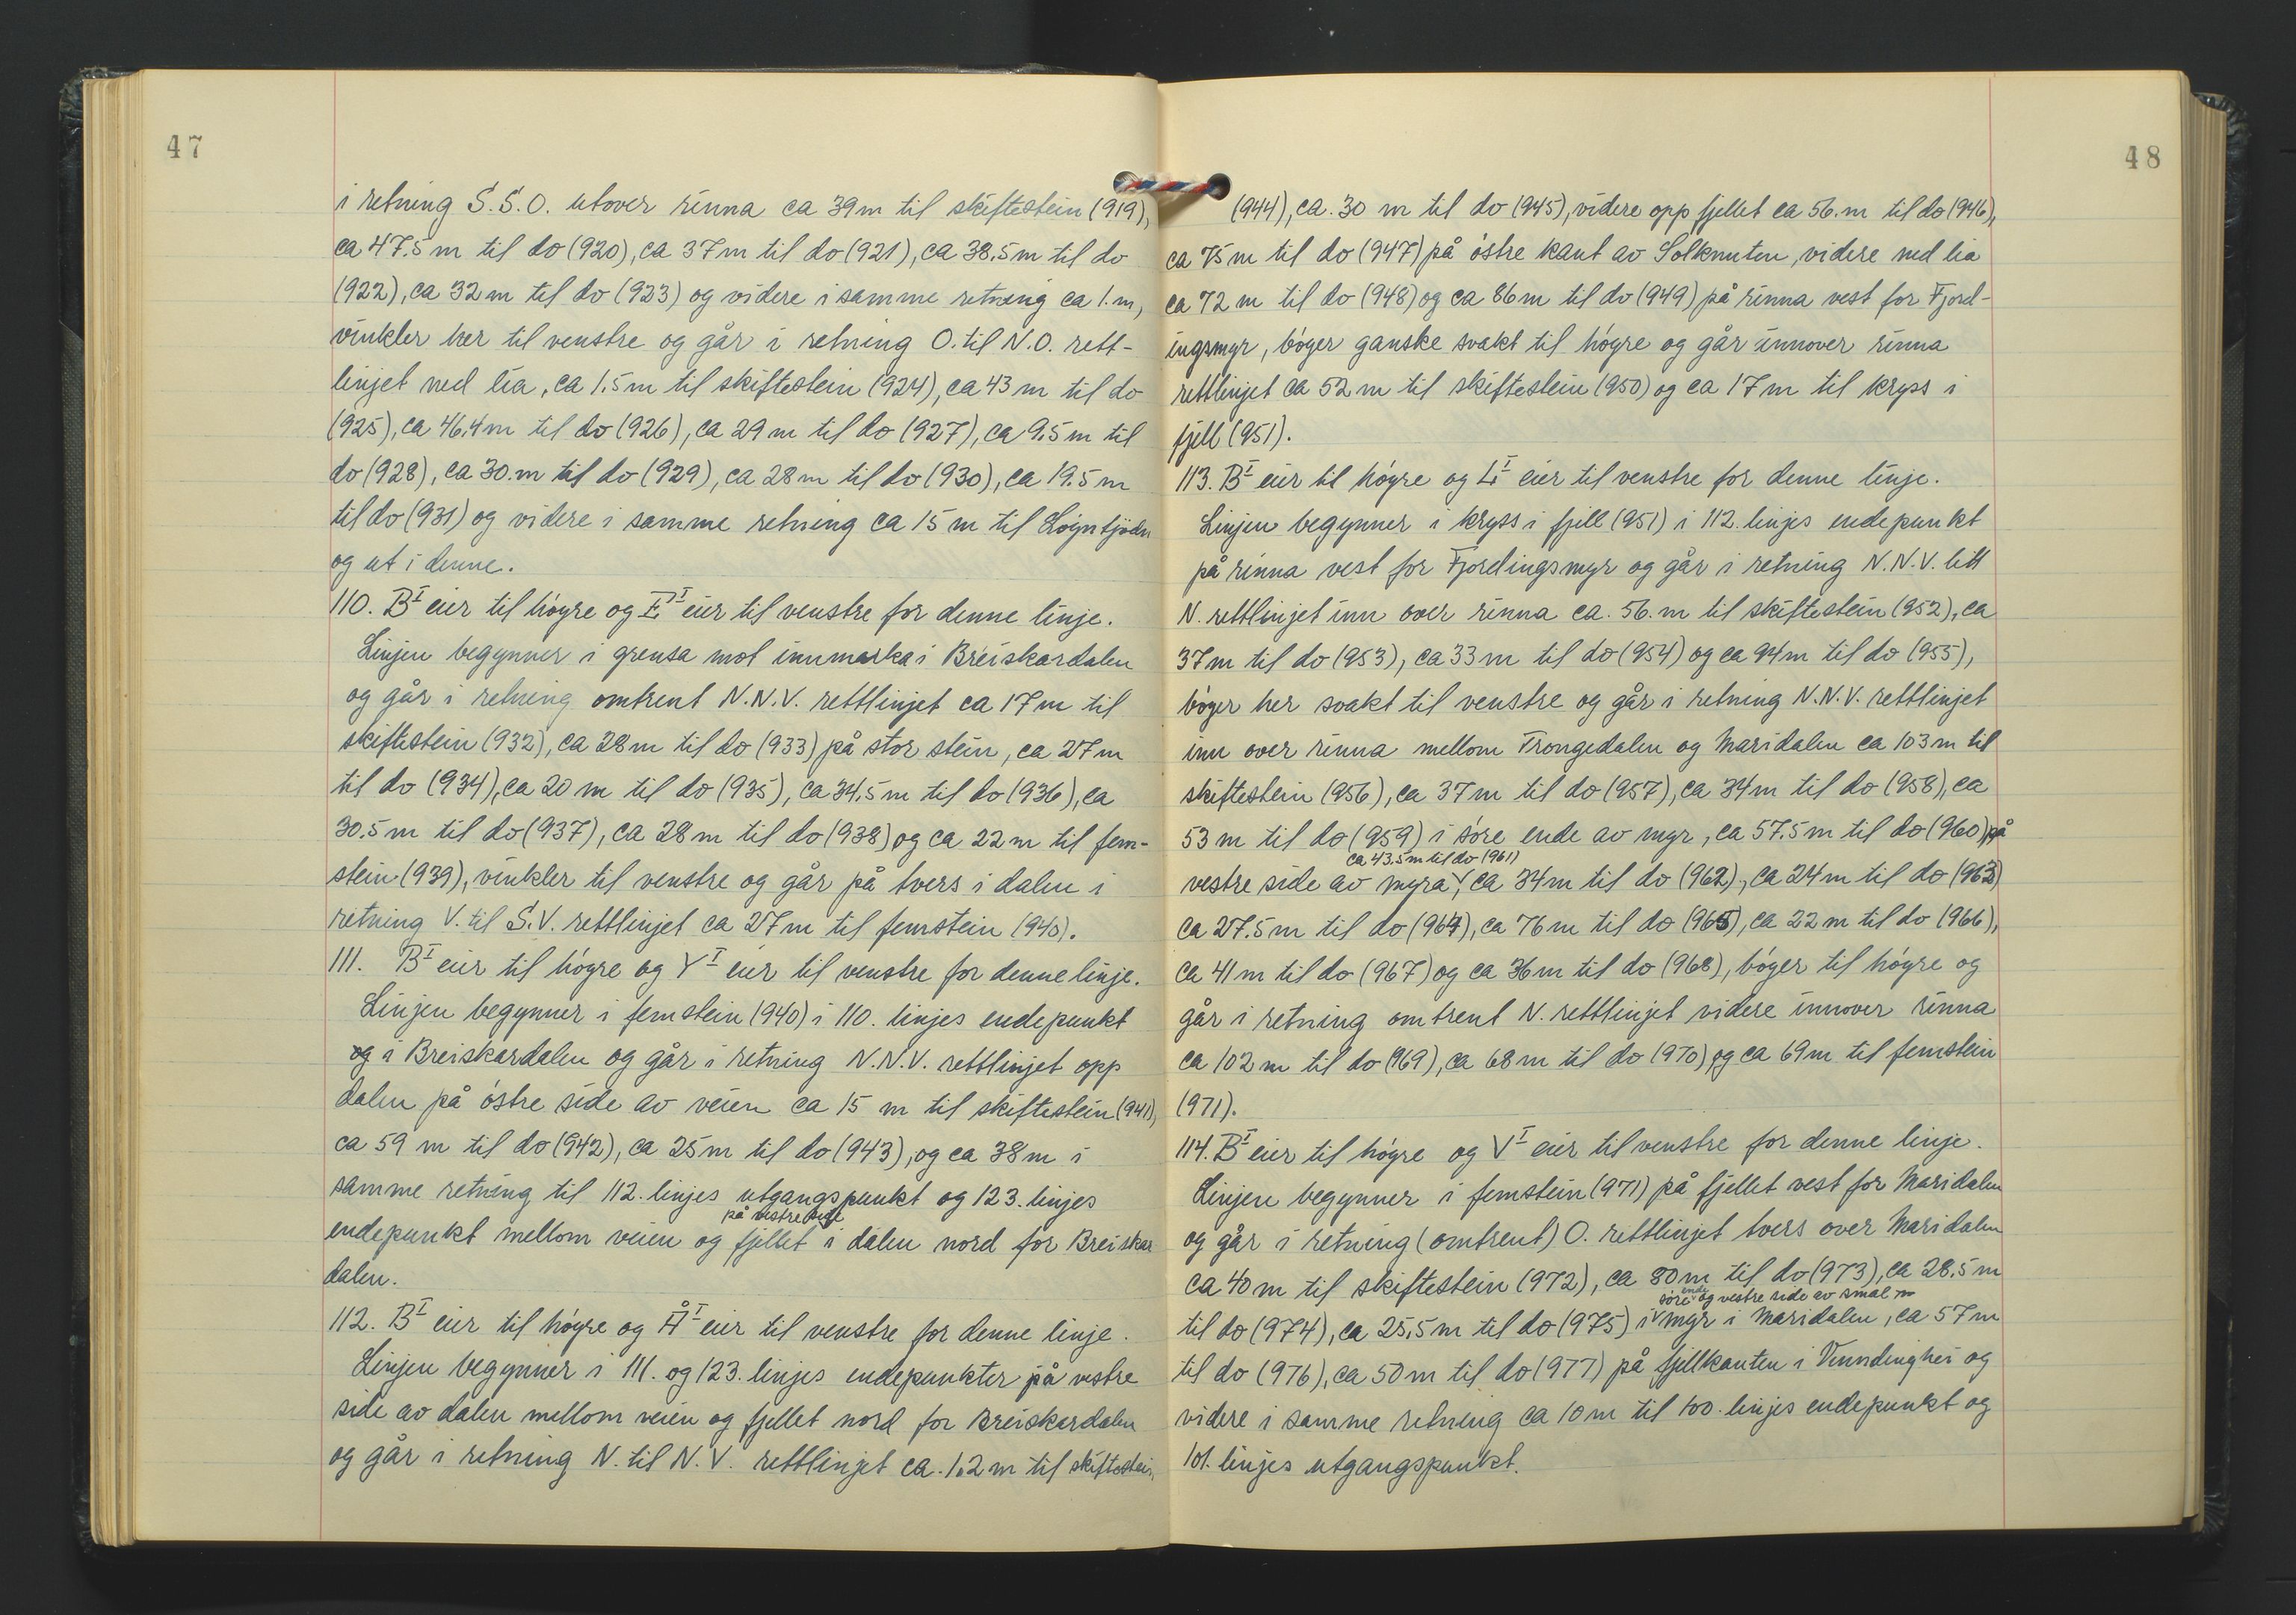 47
i retning S.S.O. utover rinna ca 39 m til skiftestein (919),
ca 47.5 m til do (920), ca 37 m til do (921), ca 38.5 m til do
(922), ca 32 m til do (923) og videre i samme retning ca 1. m,
vinkler her til venstre og går i retning O. til N.O. rett-
linjet ned lia, ca 1.5 m til skiftestein (924), ca 43 m til do
(925), ca 46.4 m til do (926), ca 29 m til do (927), ca 9.5 m til
do (928), ca 30. m til do (929), ca 28 m til do (930), ca 19.5 m
til do (931) og videre i samme retning ca 15 m til
og ut i denne.
110. B I eier til høgre og Æ I eier til venstre for denne linje.
Linjen begynner i grensa mot innmarka i Breiskardalen
og går i retning omtrent N.N.V. rettlinjet ca 17 m til
skiftestein (932), ca 28 m til do (933) på stor stein, ca 27 m
til do (934), ca 20 m til do (935), ca 34.5 m til do (936), ca
30.5 m til do (937), ca 28 m til do (938) og ca 22 m til fem-
stein (939), vinkler til venstre og går på tvers i dalen i
retning V. til S.V. rettlinjet ca 27 m til femstein (940).
111. B I eier til høgre og Y I eier til venstre for denne linje.
Linjen begynner i femstein (940) i 110. linjes endepunkt
og i Breiskardalen og går i retning N.N.V. rettlinjet opp
dalen på østre side av veien ca 15 m til skiftestein (941),
ca 59 m til do (942), ca 25 m til do (943), og ca 38 m i
samme retning til 112. linjes utgangspunkt og 123. linjes
på vestre side
endepunkt mellom veien og fjellet i dalen nord for Breiskar
dalen.
112. B I eier til høgre og Å I eier til venstre for denne linje.
Linjen begynner i 111. og 123. linjes endepunkter på vestre
side av dalen mellom veien og fjellet nord for Breiskardalen
og går i retning N. til N.V. rettlinjet ca. 1.2 m til skiftestein,
48
(944), ca. 30 m til do (945), videre opp fjellet ca 56. m til do (946),
ca 75 m til do (947) på østre kant av Solknuten, videre ned lia
ca 72 m til do (948) og ca 86 m til do (949) på rinna vest for Fjord-
ingsmyr, bøger ganske svakt til høgre og går innover rinna
rettlinjet ca 52 m til skiftestein (950) og ca 17 m til kryss i
fjell (951).
113. B I eier til høgre og I eier til venstre for denne linje.
Linjen begynner i kryss i fjell (951) i 112. linjes endepunkt
på rinna vest for Fjordingsmyr og går i retning N.N.V. litt
N. rettlinjet inn over rinna ca. 56. m til skiftestein (952), ca
37 m til do (953), ca 33 m til do (954) og ca 94 m til do (955),
bøger her svakt til venstre og går i retning N.N.V. rettlinjet
inn over rinna mellom Trongedalen og Maridalen ca 103 m til
skiftestein (956), ca 37 m til do (957), ca 34 m til do (958), ca
53 m til do (959) i søre ende av myr, ca 57.5 m til do (960) på
ca 43.5 m til do (961)
vestre side av myra, ca 34 m til do (962), ca 24 m til do (963)
ca 27.5 m til do (964), ca 76 m til do (965), ca 22 m til do (966),
ca 41 m til do (967) og ca 36 m til do (968), bøger til høgre og
går i retning omtrent N. rettlinjet videre innover rinna
ca 102 m til do (969), ca 68 m til do (970) og ca 69 m til femstein
(971).
114. B I eier til høgre og V I eier til venstre for denne linje.
Linjen begynner i femstein (971) på fjellet vest for Maridalen
og går i retning (omtrent) O. rettlinjet tvers over Maridalen
ca 40 m til skiftestein (972), ca 80 m til do (973), ca 28.5 m
søre ende og vestre side av smal
til do (974), ca 25.5 m til do (975) i myr i Maridalen, ca 57 m
til do (976), ca 50 m til do (977) på fjellkanten i Vinndinghei og
videre i samme retning ca 10 m til 100. linjes endepunkt og
101. linjes utgangspunkt.